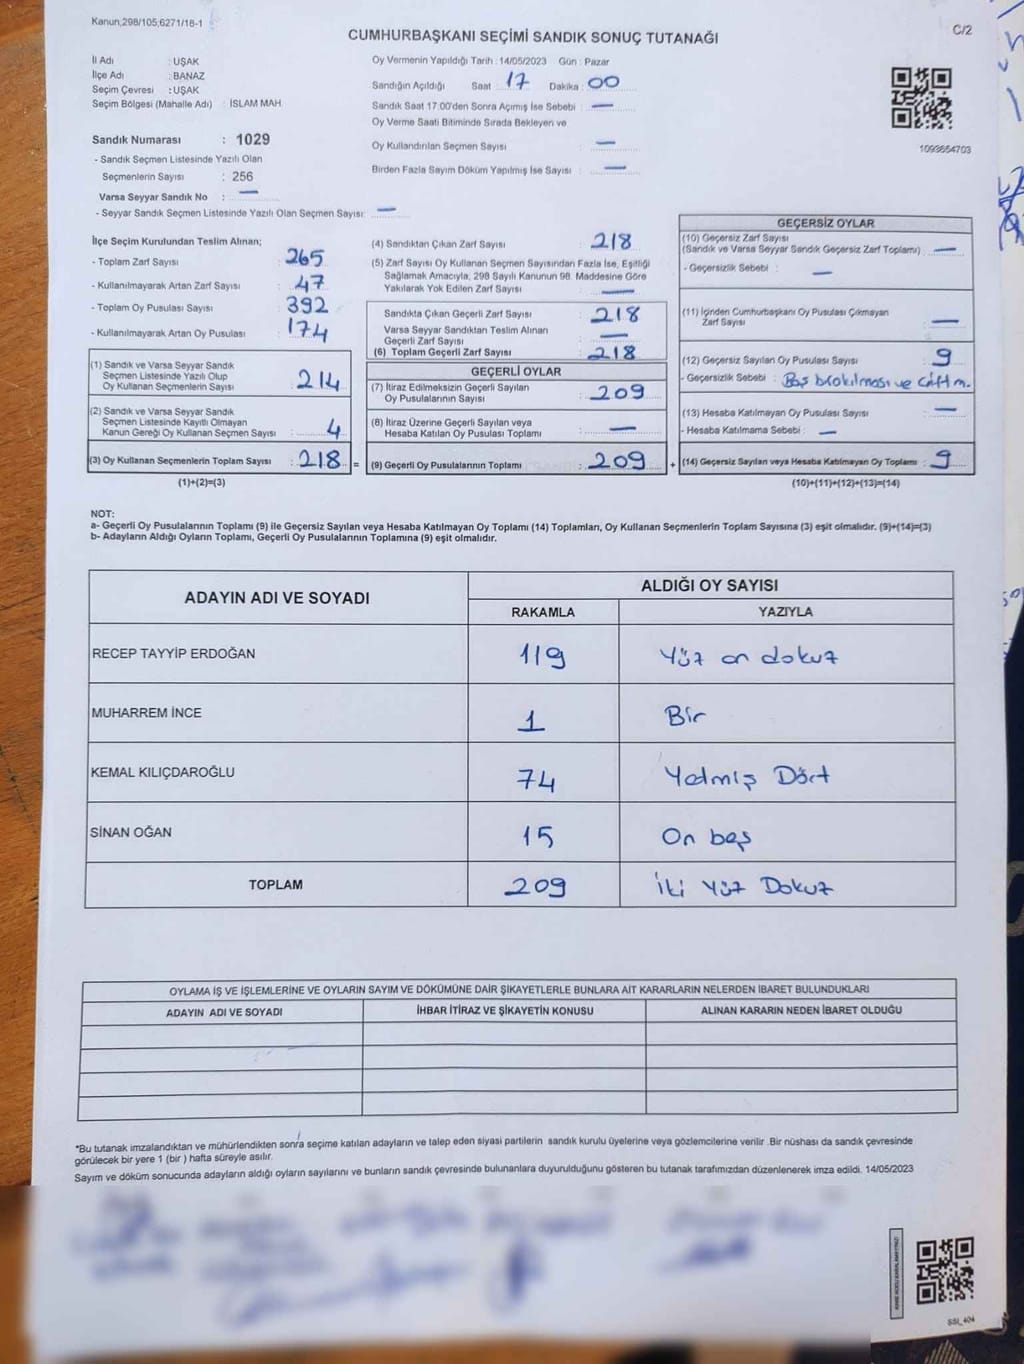 Kanun,298/105;6271/18-1
C/2
CUMHURBAŞKANI SEÇİMİ SANDIK SONUÇ TUTANAĞI
İl Adı : UŞAK
İlçe Adı : BANAZ
Seçim Çevresi : UŞAK
Seçim Bölgesi (Mahalle Adı) : İSLAM MAH
Sandık Numarası : 1029
- Sandık Seçmen Listesinde Yazılı Olan
Seçmenlerin Sayısı : 256
Varsa Seyyar Sandık No : —
- Seyyar Sandık Seçmen Listesinde Yazılı Olan Seçmen Sayısı: —
Oy Vermenin Yapıldığı Tarih : 14/05/2023 Gün : Pazar
Sandığın Açıldığı Saat : 17 Dakika : 00
Sandık Saat 17:00'den Sonra Açımış İse Sebebi : —
Oy Verme Saati Bitiminde Sırada Bekleyen ve
Oy Kullandırılan Seçmen Sayısı : —
Birden Fazla Sayım Döküm Yapılmış İse Sayısı : —
1093654703
İlçe Seçim Kurulundan Teslim Alınan;
- Toplam Zarf Sayısı : 265
- Kullanılmayarak Artan Zarf Sayısı : 47
- Toplam Oy Pusulası Sayısı : 392
- Kullanılmayarak Artan Oy Pusulası : 174
(1) Sandık ve Varsa Seyyar Sandık
Seçmen Listesinde Yazılı Olup
Oy Kullanan Seçmenlerin Sayısı : 214
(2) Sandık ve Varsa Seyyar Sandık
Seçmen Listesinde Kayıtlı Olmayan
Kanun Gereği Oy Kullanan Seçmen Sayısı : 4
(3) Oy Kullanan Seçmenlerin Toplam Sayısı : 218 =
(1)+(2)=(3)
(4) Sandıktan Çıkan Zarf Sayısı : 218
(5) Zarf Sayısı Oy Kullanan Seçmen Sayısından Fazla İse, Eşitliği
Sağlamak Amacıyla, 298 Sayılı Kanunun 98. Maddesine Göre
Yakılarak Yok Edilen Zarf Sayısı : —
Sandıkta Çıkan Geçerli Zarf Sayısı : 218
Varsa Seyyar Sandıktan Teslim Alınan
Geçerli Zarf Sayısı : —
(6) Toplam Geçerli Zarf Sayısı : 218
GEÇERLİ OYLAR
(7) İtiraz Edilmeksizin Geçerli Sayılan
Oy Pusulalarının Sayısı : 209
(8) İtiraz Üzerine Geçerli Sayılan veya
Hesaba Katılan Oy Pusulası Toplamı : —
(9) Geçerli Oy Pusulalarının Toplamı : 209 +
GEÇERSİZ OYLAR
(10) Geçersiz Zarf Sayısı
(Sandık ve Varsa Seyyar Sandık Geçersiz Zarf Toplamı) : —
- Geçersizlik Sebebi : —
(11) İçinden Cumhurbaşkanı Oy Pusulası Çıkmayan
Zarf Sayısı : —
(12) Geçersiz Sayılan Oy Pusulası Sayısı : 9
- Geçersizlik Sebebi : Boş bırakılması ve çift m.
(13) Hesaba Katılmayan Oy Pusulası Sayısı : —
- Hesaba Katılmama Sebebi : —
(14) Geçersiz Sayılan veya Hesaba Katılmayan Oy Toplamı : 9
(10)+(11)+(12)+(13)=(14)
NOT:
a- Geçerli Oy Pusulalarının Toplamı (9) ile Geçersiz Sayılan veya Hesaba Katılmayan Oy Toplamı (14) Toplamları, Oy Kullanan Seçmenlerin Toplam Sayısına (3) eşit olmalıdır. (9)+(14)=(3)
b- Adayların Aldığı Oyların Toplamı, Geçerli Oy Pusulalarının Toplamına (9) eşit olmalıdır.
ADAYIN ADI VE SOYADI ALDIĞI OY SAYISI
RAKAMLA YAZIYLA
RECEP TAYYİP ERDOĞAN 119 Yüz on dokuz
MUHARREM İNCE 1 Bir
KEMAL KILIÇDAROĞLU 74 Yetmiş Dört
SİNAN OĞAN 15 On beş
TOPLAM 209 İki Yüz Dokuz
OYLAMA İŞ VE İŞLEMLERİNE VE OYLARIN SAYIM VE DÖKÜMÜNE DAİR ŞİKAYETLERLE BUNLARA AİT KARARLARIN NELERDEN İBARET BULUNDUKLARI
ADAYIN ADI VE SOYADI İHBAR İTİRAZ VE ŞİKAYETİN KONUSU ALINAN KARARIN NEDEN İBARET OLDUĞU
*Bu tutanak imzalandıktan ve mühürlendikten sonra seçime katılan adayların ve talep eden siyasi partilerin sandık kurulu üyelerine veya gözlemcilerine verilir .Bir nüshası da sandık çevresinde
görülecek bir yere 1 (bir ) hafta süreyle asılır.
Sayım ve döküm sonucunda adayların aldığı oyların sayılarını ve bunların sandık çevresinde bulunanlara duyurulduğunu gösteren bu tutanak tarafımızdan düzenlenerek imza edildi. 14/05/2023
SSI_404